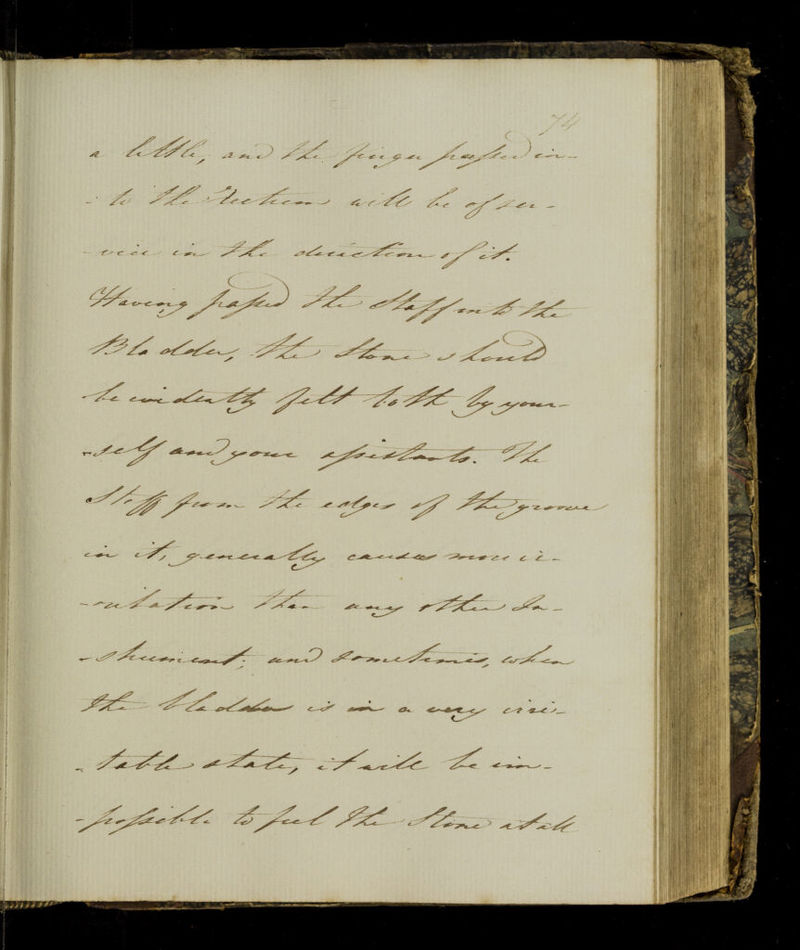 74
a little, and the finger passed in-
- to the Rectum will be of ser-
- vice in the direction of it.
Having passed the Staff into the
Bladder, the Stone should
be evidently felt both by your-
- self and your assistants. The
Staff from the edges of the groove
in it, generally causes more ir-
- ritation than any other In-
- strument; and sometimes, when
the bladder is in a very irri-
- table state, it will be im-
- possible to feel the Stone at all